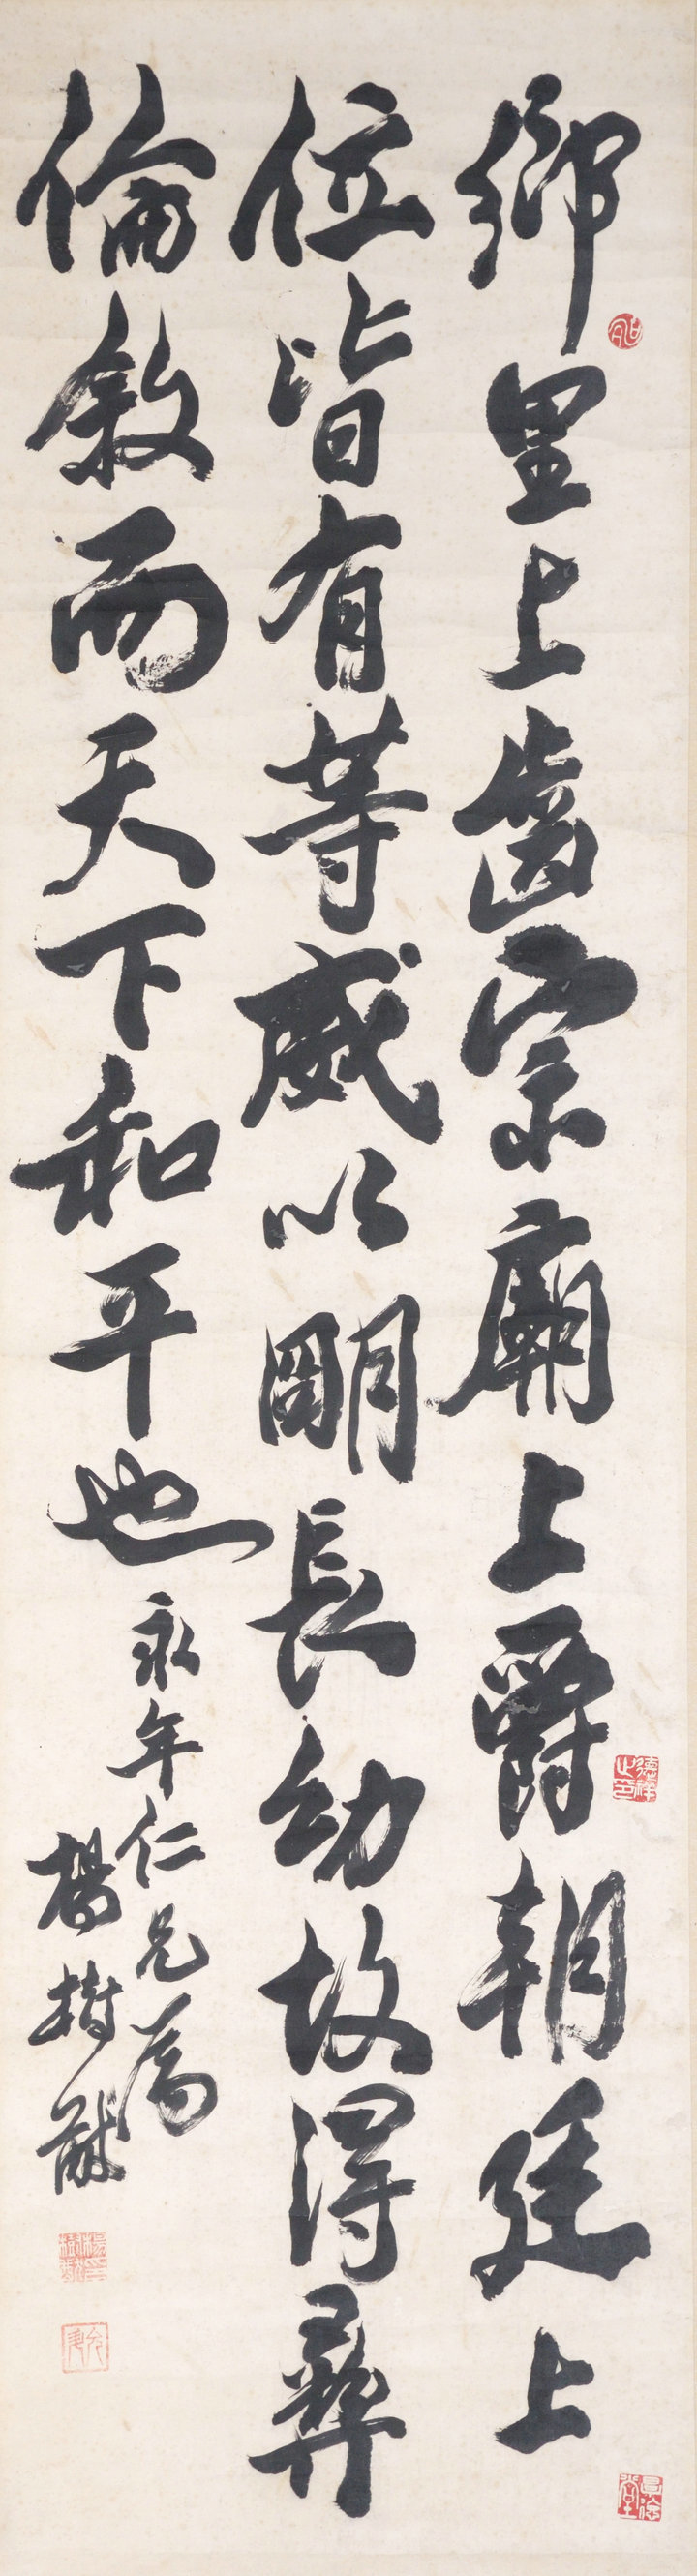 鄉里上齒宗廟上爵朝廷上
位皆有等威以明長幼故得彝
倫敘而天下和平也
永年仁兄屬
楊樹猷